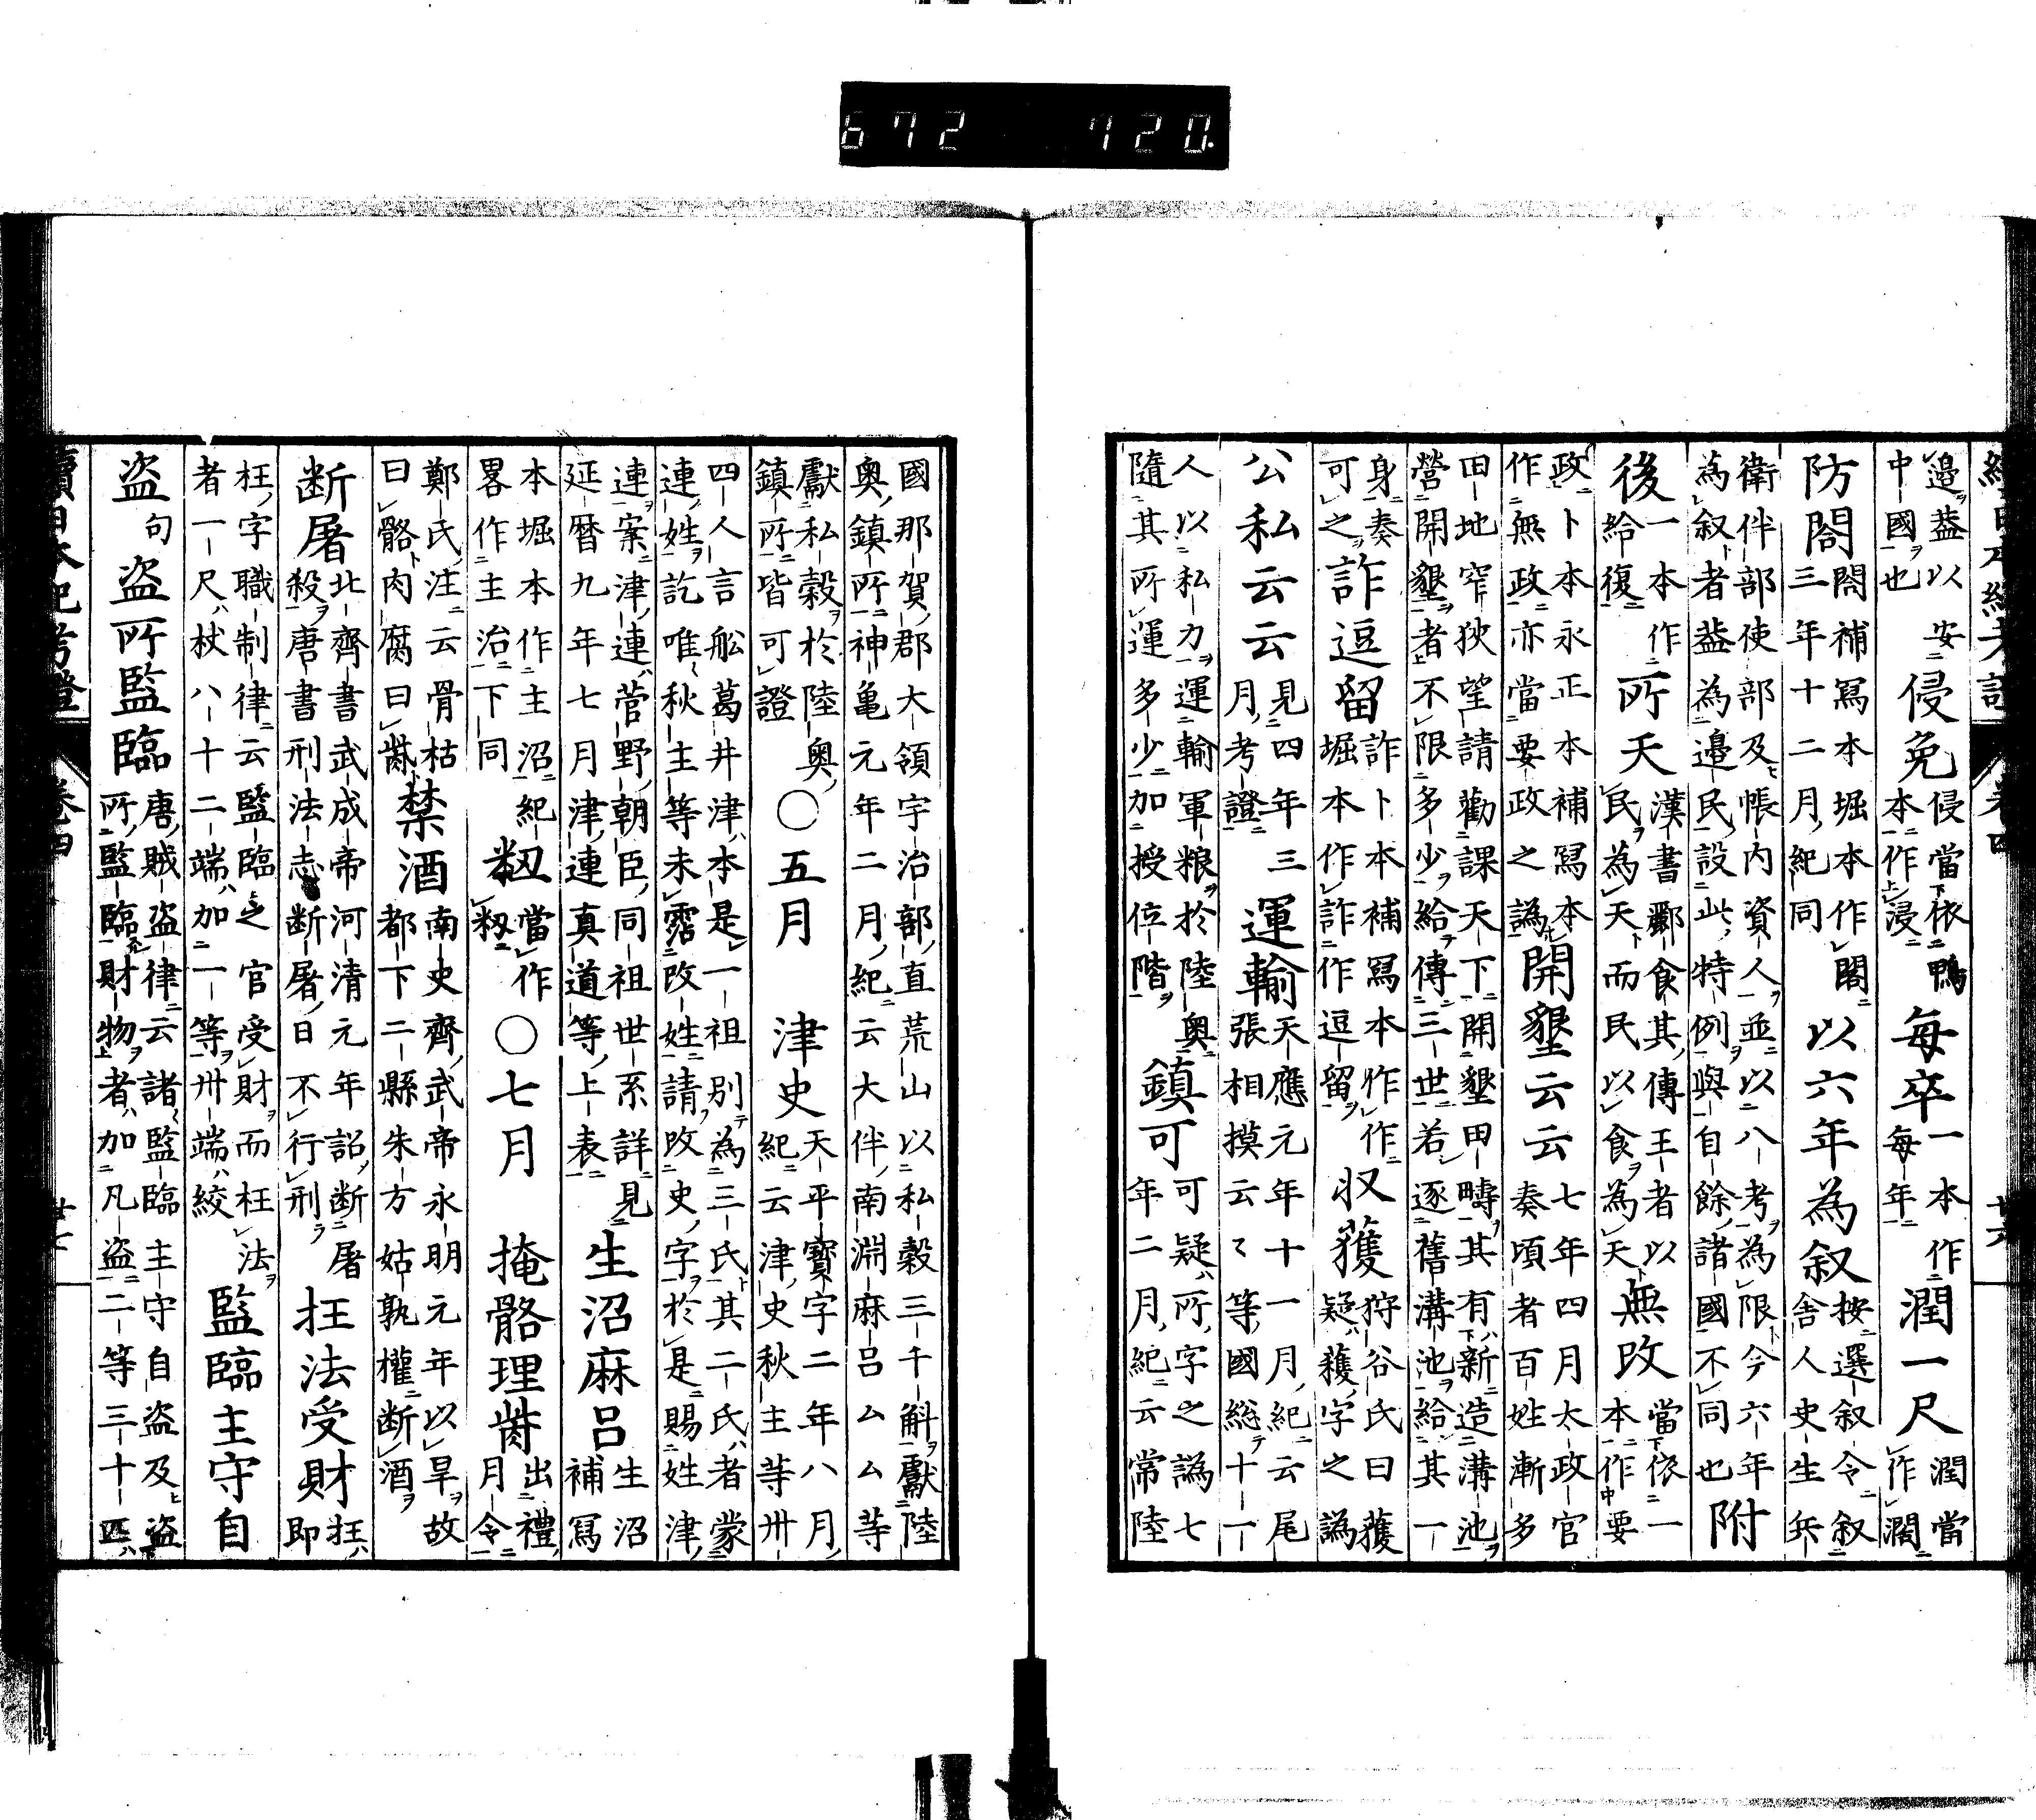 續日本紀考證 卷四 廿六
邉盖以安中國也 侵免 侵當依鴨本作浸 每卒 一本作每年 潤一尺 潤當作濶
防閤 閤補寫本堀本作閣三年十二月紀同 以六年為叙 按選叙令叙舎人史生兵
衛伴部使部及帳内資人並以八考為限今六年為叙者盖為邉民設此特例與自餘諸國不同也 附
後 一本作給復 所天 漢書酈食其傳王者以民為天而民以食為天 無改 當依一本作要
政卜本永正本補寫本作無政亦當要政之譌 開墾云云 七年四月太政官奏頃者百姓漸多
田地窄狹望請勸課天下開墾田疇其有新造溝池營開墾者不限多少給傳三世若逐舊溝池給其一
身奏可之 詐逗留 詐卜本補寫本作作堀本作詐作逗留 収獲 狩谷氏曰獲疑穫字之譌
公私云云 見四年三月考證 運輸 天應元年十一月紀云尾張相摸云々等國総十一
人以私力運輸軍粮於陸奥隨其所運多少加授位階 鎮可 可疑所字之譌七年二月紀云常陸
國那賀郡大領宇治部直荒山以私穀三千斛獻陸奥鎮所神亀元年二月紀云大伴南淵麻呂ムム等
獻私穀於陸奥鎮所皆可證 ○五月 津史 天平寳字二年八月紀云津史秋主等卅
四人言舩葛井津本是一祖別為三氏其二氏者蒙連姓訖唯秋主等未霑改姓請改史字於是賜姓津
連案津連菅野朝臣同祖世系詳見延暦九年七月津連真道等上表 生沼麻呂 生沼補寫
本堀本作主沼紀畧作主治下同 當作籾 ○七月 掩骼理胔 出禮月令
鄭氏注云骨枯曰骼肉腐曰胔 禁酒 南史齊武帝永明元年以旱故都下二縣朱方姑孰權断酒
断屠 北齊書武成帝河清元年詔断屠殺唐書刑法志断屠日不行刑 枉法受財 枉即
枉字職制律云監臨之官受財而枉法者一尺杖八十二端加一等卅端絞 監臨主守自
盗 句 盗所監臨 唐賊盗律云諸監臨主守自盗及盗所監臨財物者加凡盗二等三十匹
續日本紀考證 卷四 廿七
672 720.